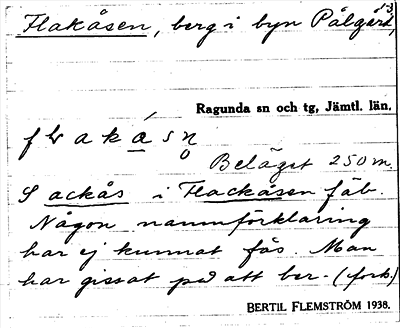 Flakåsen, berg i byn Pålgård,
Ragunda sn och tg, Jämtl. län.
Beläget 250 m.
S ackås i Flackåsen fäb.
Någon namnförklaring
har ej kunnat fås. Man
har gissat på att ber. (fork.)
BERTIL FLEMSTRÖM 1938.